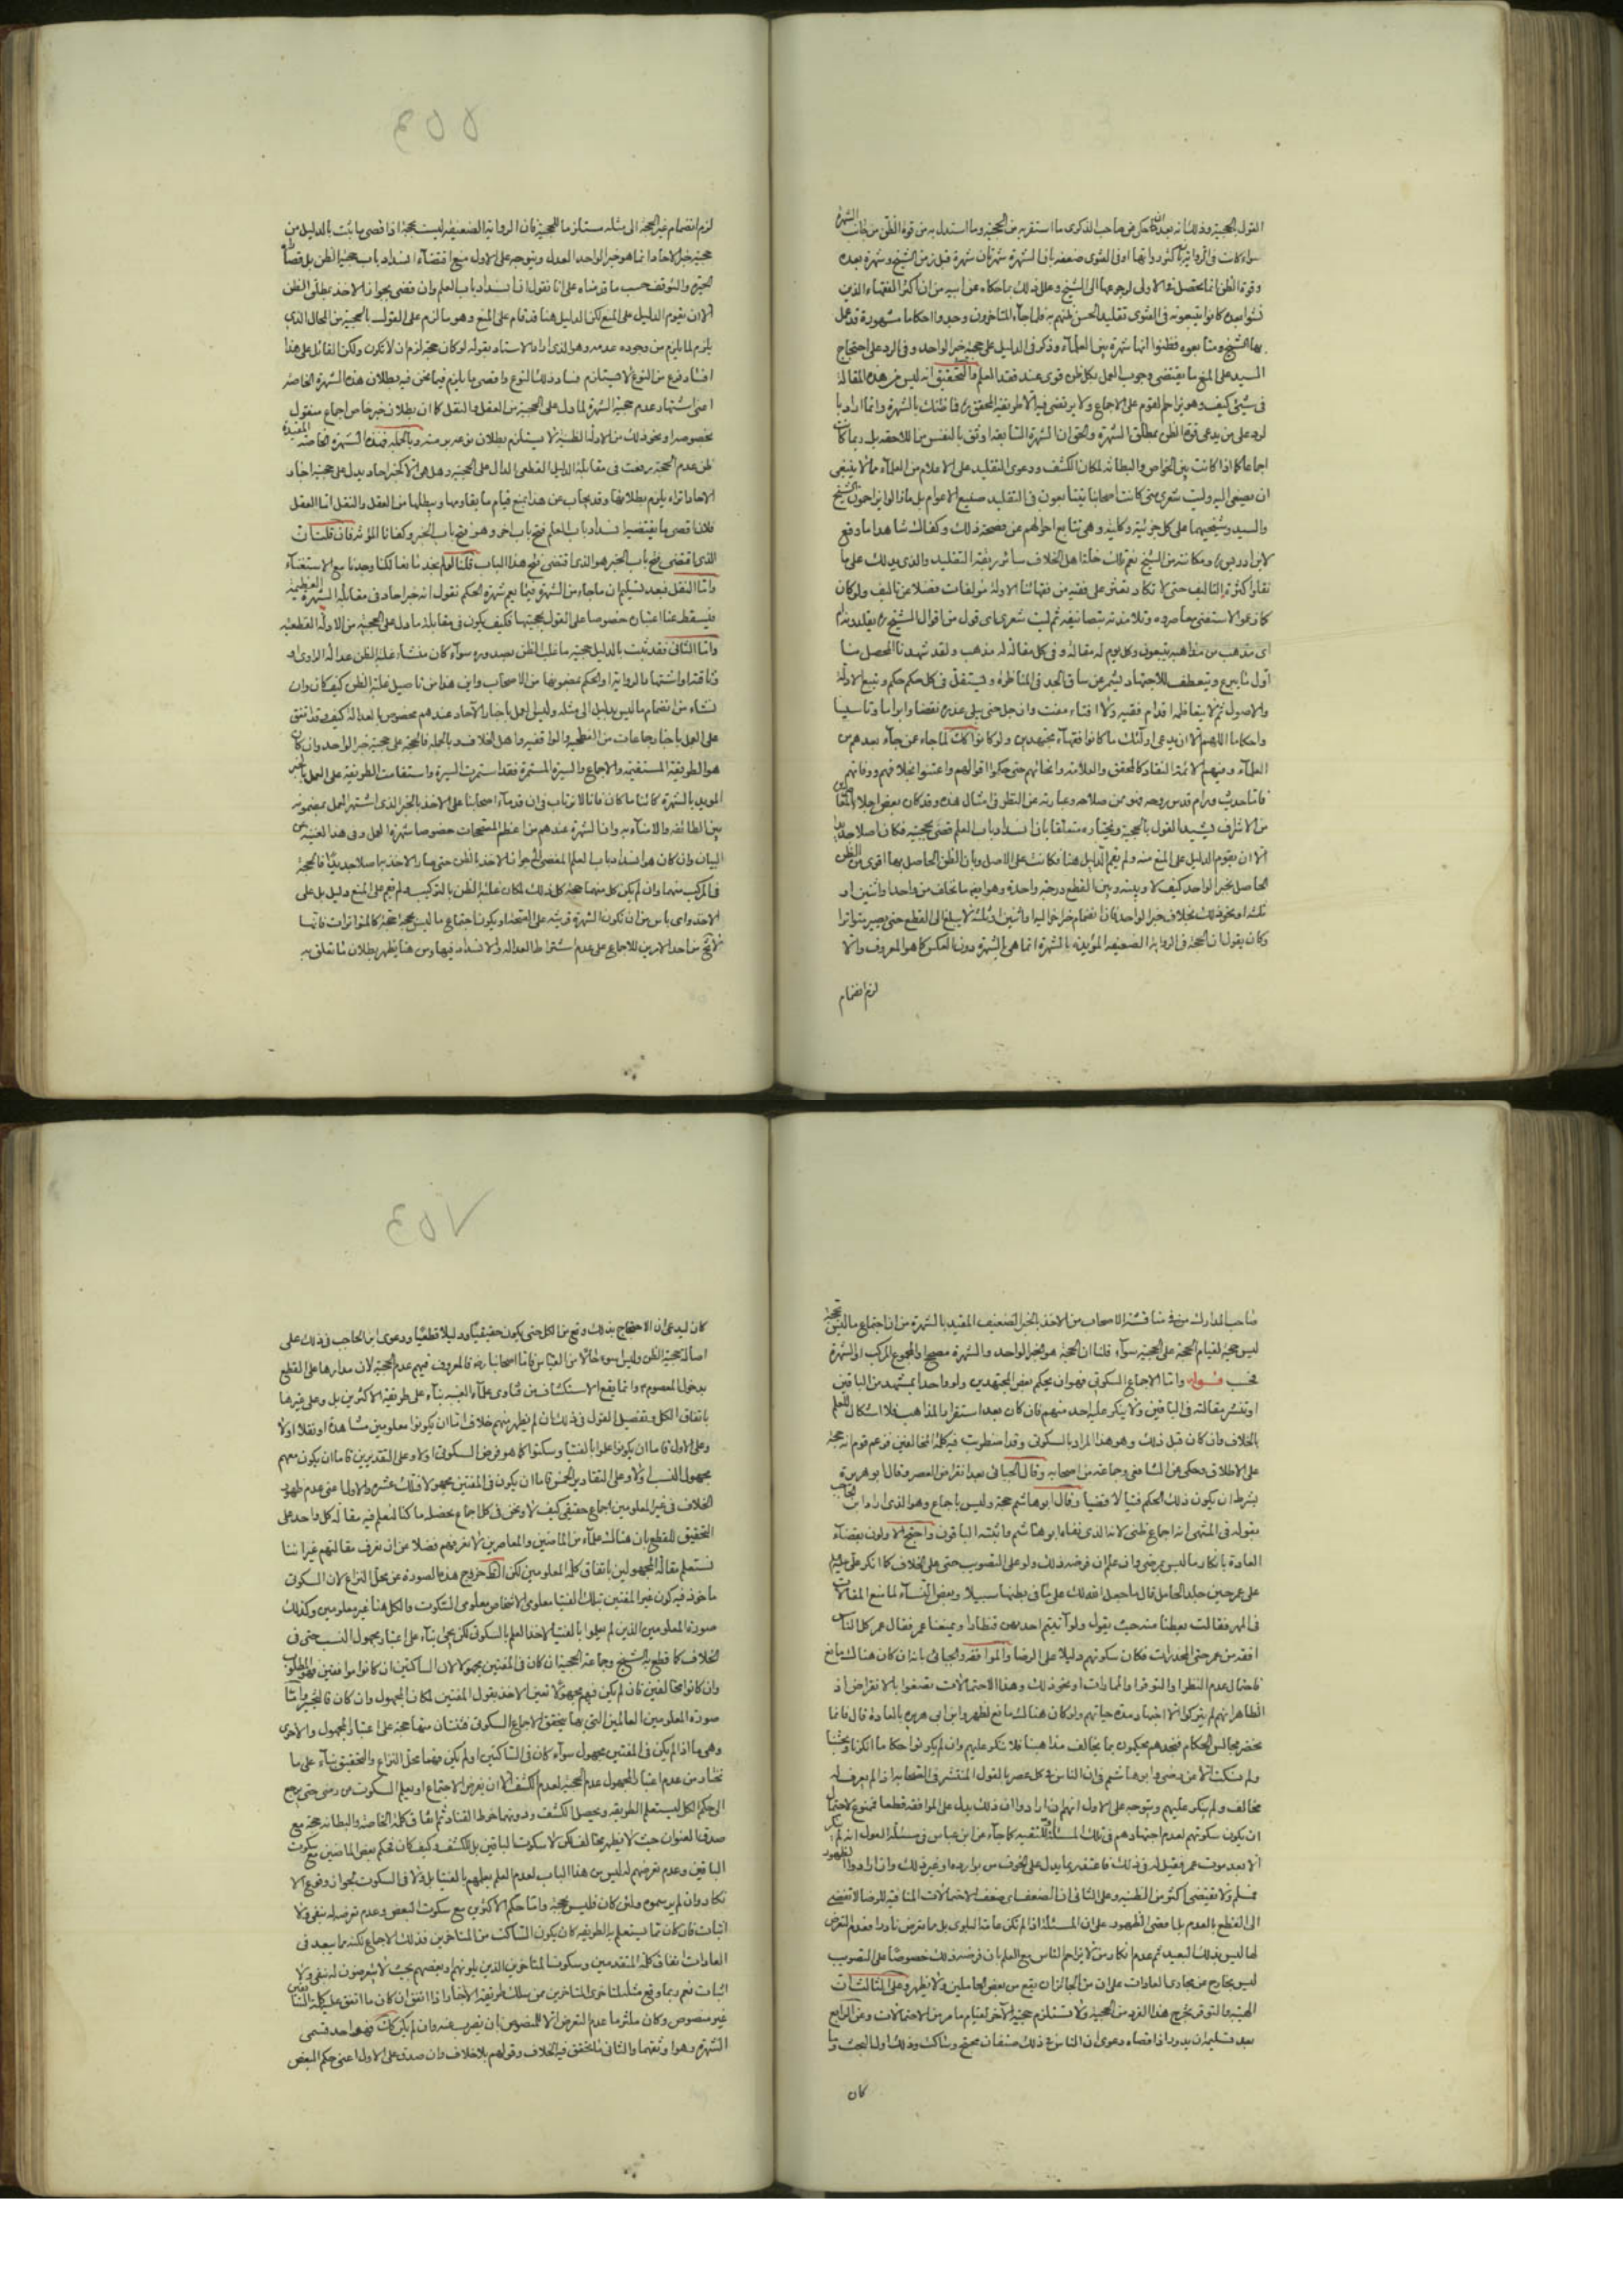 القول بالحجية وذلك انه بعد ان حكى عن صاحب الذكرى ما استقر به من الحجية وما استدل به من قوة الظن من جانب الشهرة
سواء كانت في الرواية بان كثر رواتها او في الفتوى ضعفه بان الشهرة شهرتان شهرة قبل زمن الشيخ وشهرة بعده
وقوة الظن انما تحصل في الاولى لرجوعها الى الشيخ وعلل ذلك بما حكاه عن ابيه من ان اكثر الفقهاء الذين
نشوا بعده كانوا يتبعونه في الفتوى تقليدا لحسن ظنهم به فلما جاء المتاخرون وجدوا احكاما مشهورة قد عمل
بها الشيخ ومتابعوه فظنوا انها شهرة بين العلماء وذكر في الدليل على حجية خبر الواحد وفي الرد على احتجاج
السيد على المنع ما يقتضي وجوب العمل بكل ظن قوى عند فقد العلم والتحقيق انه ليس من هذه المقالة
في شيء كيف وهو يزاحم القوم على الاجماع ولا يرتضي فيه الا طريقة المحقق ره فما ظنك بالشهرة وانما اراد بها
الرد على من يدعي قوة الظن بمطلق الشهرة والحق ان الشهرة السابقة اوثق بالنفس من اللاحقة بل ربما كانت
اجماعا كما اذا كانت بين الخواص والبطانة لمكان الكشف ودعوى التقليد على الاعلام من العلماء مما لا ينبغي
ان يصغى اليه وليت شعري متى كانت اصحابنا يتتابعون في التقليد صنيع الاعوام بل ما زالوا يزاحمون الشيخ
والسيد وشيخهما على كل جزئية وكلية وهي تتابع احوالهم عن صحة ذلك وكفاك شاهدا ما وقع
لابن ادريس ره ومكانته من الشيخ نعم تلك خلة اهل الخلاف سائر ربقة التقليد والذي يدلك على ما
نقلوا كثرة التاليف حتى لا تكاد تعثر على فقيه من فقهائنا الا وله مؤلفات فضلا عن تاليف ولو كان
كما زعموا لاستغنى معاصروه وتلامذته بتصانيفه ثم ليت شعري اي قول من اقوال الشيخ ره يقلدونه ام
اي مذهب من مذاهبه يتبعون وكل يوم له مقالة وفي كل مقالة له مذهب ولقد شهدنا المحصل منا
اول ما يبرع ويتعطف للاجتهاد يشمر عن ساق الجد في المناظرة ويستقل في كل حكم حكم وتتبع الادلة
والاصول ثم لا يتعاظمه اقدام فقيه ولا افتاء مفت وان جل حتى يلي عذره نقضا وابراما وتاسيسا
واحكاما اللهم الا ان يدعي اولئك ما كانوا فقهاء مجتهدين ولو كانوا كك لما جاء عمن جاء بعدهم من
العلماء وفيهم الائمة النقاد كالمحقق والعلامة وانحائهم حتى حكوا اقوالهم واعتنوا بخلافهم ووفاقهم
فاما حديث ورام قدس روحه فهو ممن صلاحه وعبارته عن النظر في امثال هذه وقد كان بعض اجلاء المقاربين
من الاشراف يشيد القول بالحجية ويختاره متعلقا بان انسداد باب العلم قضى بحجيته فكان اصلا حديدا
الا ان يقوم الدليل على المنع منه ولم يقم الدليل هنا فكانت على الاصل وبان الظن الحاصل بها اقوى من الظن
الحاصل بخبر الواحد كيف لا وبينه وبين القطع درجة واحدة وهو ابقى ما تخلف من واحد او اثنين او
ثلثة او نحو ذلك بخلاف خبر الواحد فان انضمام خبر اخر اليه او اثنين او ثلثة لا يبلغ الى القطع حتى يصير متواترا
وكان يقول ان الحجة في الرواية الضعيفة المؤيدة بالشهرة انما هي الشهرة دون العكس كما هو المعروف والا
لزم انضمام
لزم انضمام غير الحجة الى مثله مستلزما للحجية فان الرواية الضعيفة ليست بحجة اذ اقصى ما ثبت بالدليل من
حجية خبر الاحاد انما هو خبر الواحد العدل ويتوجه على الاول منع اقتضاء انسداد باب حجية الظن بل قضاء
الحيرة والتوقف حسب ما قدمناه على انا نقول ان انسداد باب العلم وان قضى بجواز الاخذ بمطلق الظن
الا ان يقوم الدليل على المنع لكن الدليل هنا قد قام على المنع وهو ما لزم على القول بالحجية من المحال الذي
يلزم لما يلزم من وجوده عدمه وهو الذي اراد الاستاد بقوله لو كان حجة لزم ان لا تكون ولكن القائل على هذا
افساد فرع من النوع لا يستلزم فساد ذلك النوع واقصى ما يلزم فيما نحن فيه بطلان هذه الشهرة الخاصة
اعني اشتهار عدم حجية الشهرة لما دل على الحجية من العقل والنقل كما ان بطلان خبر خاص اجماع منقول
بخصوصه او نحو ذلك من الادلة الظنية لا يستلزم بطلان نوعه برمته وبالجملة فهذه الشهرة الخاصة المفيدة
لظن عدم الحجية رفعت في مقابلة الدليل القطعي الدال على الحجية وهل هو الا كخبر احاد يدل على حجية احاد
الاحاد اتراه يلزم بطلانها وقد يجاب عن هذا بمنع قيام ما يقاومها ويبطلها من العقل والنقل اما العقل
فلان اقصى ما يقتضيه انسداد باب العلم فتح باب اخر وهو فتح باب الخبر وكفانا المؤنة فان قلت ان
الذي اقتضى فتح باب الخبر هو الذي اقتضى فتح هذا الباب قلنا لم نجد مانعا لكنا وجدنا مع الاستغناء
واما النقل فبعد تسليم ان ما جاء من الشهرة فيما يعم شهرة الحكم نقول انه خبر احاد في مقابلة الشهرة العظيمة
فيسقط عن الاعتبار خصوصا على القول بحجيتها فكيف يكون في مقابلة ما دل على الحجية من الادلة القطعية
واما الثاني فقد ثبت بالدليل حجية ما غلب الظن بصدوره سواء كان منشأ غلبة الظن عدالة الراوي او
وثاقته او اشتهار الرواية او الحكم بمضمونها من الاصحاب واين هذا من تاصيل غلبة الظن كيف كان وان
نشاء من انضمام ما ليس بدليل الى مثله وليس العمل باخبار الآحاد عندهم بخصوص العدالة كيف وقد اتفق
على العمل باخبار جماعات من الفطحية والواقفية واهل الخلاف وبالجملة فالحجة على حجية خبر الواحد وان كان
هو الطريقة المستقيمة والاجماع والسيرة المستمرة فقد استمرت السيرة واستقامت الطريقة على العمل بالخبر
المويد بالشهرة كائنا ما كان فانا لا نرتاب في ان قدماء اصحابنا على الاخذ بالخبر الذي اشتهر العمل بمضمونه
بين الطائفة والافتاء به وان الشهرة عندهم من اعظم المصححات خصوصا شهرة العمل وفي هذا الغنية عن
البيان وان كان هو انسداد باب العلم المفضي الى جواز الاخذ بالظن حتى صار الاخذ به اصلا جديدا فالحجة
في المركب منهما وان لم يكن كل منهما حجة كل ذلك لمكان غلبة الظن بالتركيب ولم يقم على المنع دليل بل على
الاخذ واي باس من ان تكون الشهرة قرينة على الصحة او يكون اجتماع ما ليس بحجة حجة كالمتواترات فانها
لا تخ من احد الامرين للاجماع على عدم اشتراط العدالة ولا انسداد فيها ومن هنا يظهر بطلان ما تعلق به
صاحب المدارك من مناقشة الاصحاب من الاخذ بالخبر الضعيف المقيد بالشهرة من ان اجتماع ما ليس بحجة
ليس حجة لقيام الحجة على الحجية سواء قلنا ان الحجة هو الخبر الواحد والشهرة مصححة او المجموع المركب او الشهرة
فحسب قوله واما الاجماع السكوتي فهو ان يحكم بعض المجتهدين ولو واحدا بمشهد من الباقين
او تنتشر مقالته في الباقين ولا ينكر عليه احد منهم فان كان بعد استقرار المذاهب فلا اشكال للعلم
بالخلاف وان كان قبل ذلك وهو هذا المراد بالسكوتي وقد اضطربت فيه كلمة المخالفين فزعم قوم انه حجة
على الاطلاق وحكى عن الشافعي وجماعة من اصحابه وقال الجبائي بعد انقراض العصر وقال ابو هريرة
بشرط ان يكون ذلك الحكم فتيا لا قضيا وقال ابو هاشم حجة وليس باجماع وهو الذي اراد ابن الحاجب
بقوله في المنتهى انه اجماع ظني لانه الذي نفاه ابو هاشم واثبته الباقون واحتج الاولون بقضاء
العادة بانكار ما ليس بمرضي وان علم ان فرضه ذلك ولو على التصويب حتى على الخلاف كما انكر علي عليه السلم
على عمر حين جلد الحامل قال ما جعل الله لك على ما في بطنها سبيلا وبعض النساء لما منع المغالاة
في المهر فقالت يعطينا الله حيث يقول ولو آتيتم احديهن قنطارا ويمنعنا عمر فقال عمر كل الناس
افقه من عمر حتى المخدرات فكان سكوتهم دليلا على الرضا والموافقة والجبائي بانه ان كان هناك مانع
فاحتمال عدم النظر او التوقر او المماراة او نحو ذلك وهذه الاحتمالات تضعف بالانقراض اذ
الظاهر انهم لم يتركوا الاجتهاد مدة حياتهم ولو كان هناك مانع لظهر وابن ابي هريرة بالعادة قال فانما
نحضر مجالس الحكام فنجدهم يحكمون بما يخالف مذاهبنا فلا ننكر عليهم وان لم يكونوا حكاما انكرنا وبحثنا
ولم نسكت الا عن رضى وابو هاشم في ان الناس في كل عصر بالقول المنتشر في الصحابة اذا لم يعرف له
مخالف ولم ينكر عليهم ويتوجه على الاول انهم ان ارادوا ان ذلك يدل على الموافقة قطعا فممنوع لاحتمال
ان يكون سكوتهم لعدم اجتهادهم في تلك المسئلة او للتقية كما جاء عن ابن عباس في مسئلة العول انه لم ينكر
الا بعد موت عمر فقيل له في ذلك فاعتذر بما يدل على الخوف من بوادره او غير ذلك وان ارادوا الظهور
فمسلم ولا يقتضي اكثر من الظنية وعلى الثاني ان الضعف اي ضعف الاحتمالات المنافية للرضا لا تقضي
الى القطع بالعدم بل اقصى الظهور على ان المسئلة اذا لم تكن عامة البلوى بل مما تعرض نادرا فعدم التعرض
لها ليس بذلك البعيد ثم عدم انكار من لا يزاحم الناس مع العلم بان فرضه ذلك خصوصا على التصويب
ليس بخارج عن مجاري العادات على ان من الجائز ان يقع من بعض الحاملين ولا نظهر وعلى الثالث ان
الهيبة والتوقر يخرج هذا الفرد من الحجية ولا تستلزم حجية الآخر لقيام ما مر من الاحتمالات وعن الرابع
بعد تسليم ان يدور اذ اقصاه دعوى ان الناس في ذلك صنفان محتج وساكت وذلك اول البحث وما
كان
كان ليدعي ان الاحتجاج بذلك وقع من الكل حتى يكون حقيقيا ودليلا قطعيا ودعوى ابن الحاجب في ذلك على
اصالة حجية الظن وليس اسوء حالا من القياس فاما اصحابنا رضه فالمعروف فيهم عدم الحجية لان مدارها على القطع
بدخول المعصوم ع وانما يقع الاستكشاف من فتاوى علماء الغيبة بناء على طريقة الاكثرين بل وعلى غيرها
باتفاق الكل وتفصيل القول في ذلك ان لم يظهر منهم خلاف اما ان يكونوا معلومين مشاهدة او نقلا او لا
وعلى الاول فاما ان يكونوا علموا بالفتيا وسكتوا كما هو فرض السكوتي او لا وعلى التقديرين فاما ان يكون معهم
مجهول النسب او لا وعلى التقادير الخمس فاما ان يكون في المفتين مجهول او لا فتلك عشرة والاولى اعني عدم ظهور
الخلاف في غير المعلومين اجماع حقيقي كيف لا ونحن في كل اجماع نحصله ما كنا لنعلم فيه مقالة كل واحد على
التحقيق للقطع بان هناك علماء من الماضين والمعاصرين لا نعرفهم فضلا عن ان نعرف مقالتهم غير اننا
نستعلم مقالة المجهولين باتفاق كلمة المعلومين لكن الظ خروج هذه الصورة عن محل النزاع لان السكوت
ماخوذ فيه كون غير المفتين بتلك الفتيا معلومي الاشخاص معلومي السكوت والكل هنا غير معلومين وكذلك
صورة المعلومين الذين لم يعلموا بالفتيا لاخذ العلم بالسكوتي لكن يجئ بناء على اعتبار مجهول النسب حتى في
الخلاف كما قطع به الشيخ وجماعة الحجية ان كان في المفتين مجهول الان الساكتين ان كانوا موافقين فهو المطلوب
وان كانوا مخالفين فان لم يكن فيهم مجهول تعين الاخذ بقول المفتين لمكان المجهول وان كان فالتخيير واما
صورة المعلومين العالمين التي بها يتحقق الاجماع السكوتي فثنتان منها حجة على اعتبار المجهول والاخرى
وهي ما اذا لم يكن في المفتين مجهول سواء كان في الساكتين او لم يكن وهما محل النزاع والتحقيق بناء على ما
نختار من عدم اعتبار المجهول عدم الحجية لعدم الكشف الا ان يفرض الاجتماع او يعلم السكوت عن رضى حتى يرجع
الى حكم الكل ليستعلم الطريقة ويحصل الكشف ودونهما خرط القتاد ثم انما كلمة الخاصة والبطانة حجة مع
صدق العنوان حيث لا يظهر مخالف لكن لا سكوت الباقين بل للكشف وكيف كان فحكم بعض الماضين مع سكوت
الباقين وعدم تعرضهم له ليس من هذا الباب لعدم العلم بعلمهم بالفتيا بل ولا في السكوت لجواز وقوع الا
نكار وان لم يرسموه ولئن كان فليس بحجة واما حكم الاكثرين مع سكوت البعض وعدم تعرضه له بنفي ولا
اثبات فان كان مما يستعلم به الطريقة كان يكون الساكت من المتاخرين فذلك الاجماع لكنه مما يبعد في
العادات اتفاق كلمة المتقدمين وسكوت المتاخرين الذين يلونهم او بعضهم بحيث لا يتعرضون له بنفي ولا
اثبات نعم ربما وقع مثله لمتاخري المتاخرين ممن سلك طريقة الاخبار اذا اتفق ان كان ما اتفق عليه كلمة السابقين
غير منصوص وكان ملتزما عدم التعرض الا للمنصوص بان يصرب عنه وان لم يكن كك فهو احد قسمي
الشهرة وهو اوثقهما والثاني ما يتحقق فيه الخلاف وقولهم بلا خلاف وان صدق على الاول اعني حكم البعض